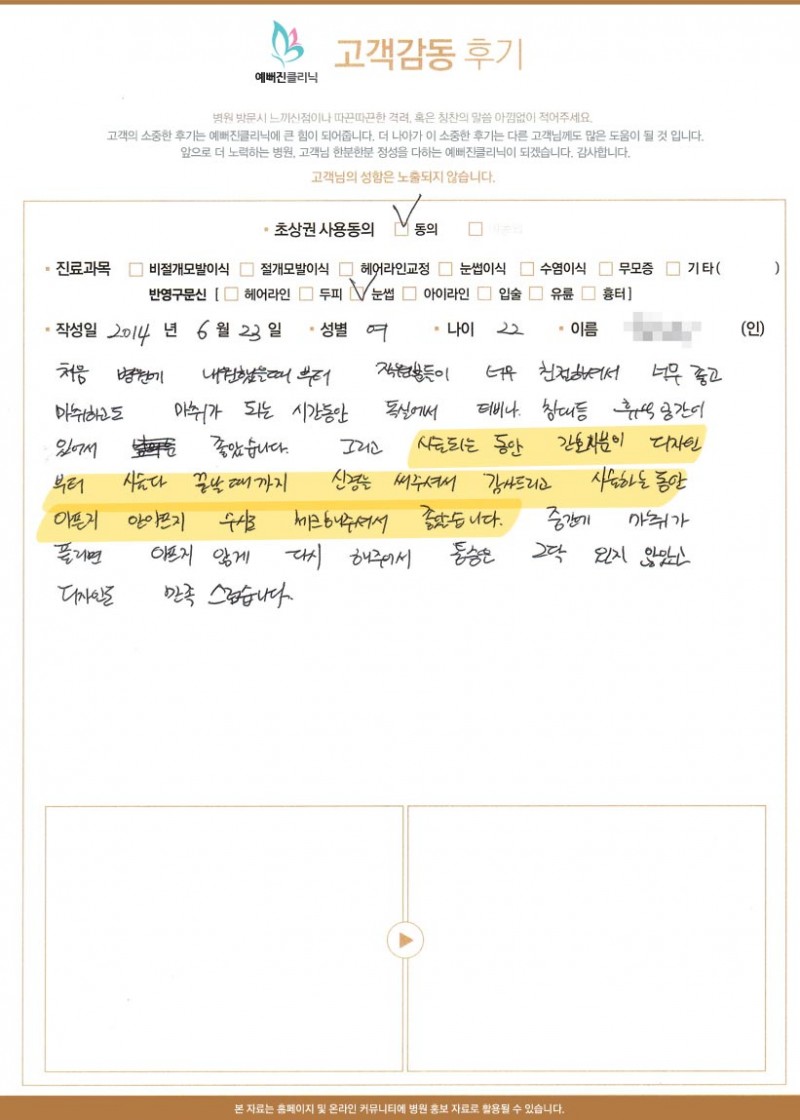 예뻐진클리닉
고객감동 후기
병원 방문시 느끼신점이나 따끈따끈한 격려, 혹은 칭찬의 말씀 아낌없이 적어주세요.
고객의 소중한 후기는 예뻐진클리닉에 큰 힘이 되어줍니다. 더 나아가 이 소중한 후기는 다른 고객님께도 많은 도움이 될 것 입니다.
앞으로 더 노력하는 병원, 고객님 한분한분 정성을 다하는 예뻐진클리닉이 되겠습니다. 감사합니다.
고객님의 성향은 노출되지 않습니다.
• 초상권 사용동의 □ 동의 □
• 진료과목 □ 비절개모발이식 □ 절개모발이식 □ 헤어라인교정 □ 눈썹이식 □ 수염이식 □ 무모증 □ 기타( )
반영구문신 [ □ 헤어라인 □ 두피 □ 눈썹 □ 아이라인 □ 입술 □ 유륜 □ 흉터 ]
• 작성일 2014 년 6 월 23 일 • 성별 여 • 나이 22 • 이름 (인)
처음 병원에 내원했을때 부터 직원분들이 너무 친절하셔서 너무 좋고
마취하고도 마취가 되는 시간동안 독실에서 티비나, 침대등 휴식공간이
있어서 좋았습니다. 그리고 시술되는 동안 간호사분이 디자인
부터 시술다 끝날때까지 신경을 써주셔서 감사드리고 시술하는 동안
아픈지 안아픈지 수시로 체크해주셔서 좋았습니다. 중간에 마취가
풀리면 아프지 않게 다시 해주어서 통증은 그닥 있지 않았고
디자인도 만족 스럽습니다.
본 자료는 홈페이지 및 온라인 커뮤니티에 병원 홍보 자료로 활용될 수 있습니다.